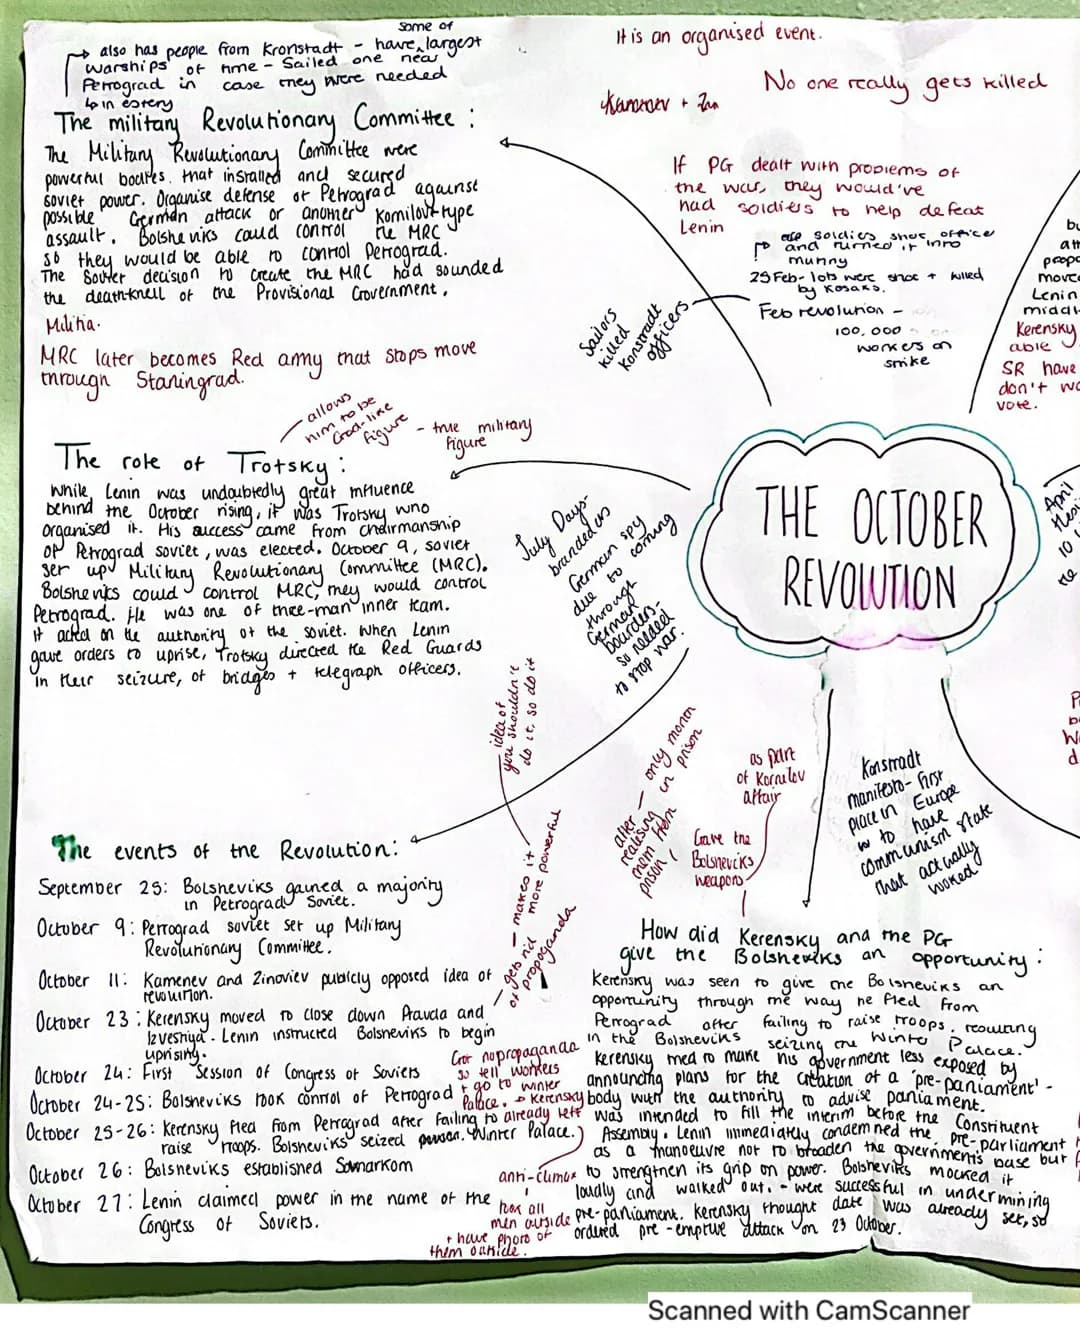 some of
also has people from Kronstadt - have largest
warships of time - Sailed one near
Petrograd in case they were needed
The military Revolutionary Committee :
The Military Revolutionary Committee were
powerful bodies. that installed and secured
soviet power. Organise defense of Petrograd against
possible German attack or another Kornilov type
assault. Bolsheviks could control the MRC
so they would be able to control Petrograd.
The Soviet decision to create the MRC had sounded
the deathknell of the Provisional Government.
Militia.
MRC later becomes Red army that stops move
through Staningrad.
It is an organised event.
No one really gets killed
Kamenev +
If PG dealt with problems of
the war, they would've
had soldiers to help defeat
Lenin
soldies shot office
and turned it into
mutiny
25 Feb - lots were shot + killed
by Kosaks.
Feb revolution -
100,000
workers on
strike
Sailors
killed
Konstradt
officers
allows
him to be
God-like
figure
- true military
figure
The role of Trotsky :
While Lenin was undoubtedly great influence
behind the October rising, it was Trotsky who
organised it. His success came from chairmanship
of Petrograd soviet, was elected. October 9, soviet
set up Military Revolutionary Committee (MRC).
Bolsheviks could control MRC, they would control
Petrograd. He was one of three-man inner team.
It acted on the authority of the soviet. When Lenin
gave orders to uprise, Trotsky directed the Red Guards
in their seizure, of bridges + telegraph officers.
THE OCTOBER
REVOLUTION
July Days-
branded as
German spy
due to coming
through
German
boarders-
so needed
to stop war.
bu
att
propo
move
Lenin
middl
Kerensky
able
SR have
don't wa
vote.
April
10
the
idea of
you shouldn't
do it, so do it
The events of the Revolution:
September 25: Bolsheviks gained a majority
in Petrograd Soviet.
October 9: Petrograd soviet set up Military
Revolutionary Committee.
October 11: Kamenev and Zinoviev publicly opposed idea of
revolution.
October 23: Kerensky moved to close down Pravda and
Izvestiya. Lenin instructed Bolsheviks to begin
uprising.
October 24: First Session of Congress of Soviets
October 24-25: Bolsheviks took control of Petrograd
October 25-26: Kerensky fled from Petrograd after failing to
raise troops. Bolsheviks seized Winter Palace.
October 26: Bolsheviks established Sovnarkom
October 27: Lenin claimed power in the name of the
Congress of Soviets.
gets rid - makes it
of propaganda more powerful
Got no propaganda
so tell workers
to go to winter
Palace. Kerensky
already left
anti-climax
has all
men outside
+ have photo of
them outside.
after - only month
realising in prison
them from
prison
as part
of Kornilov
affair
Gave the
Bolsheviks
weapons
Konstradt
manifesto - first
place in Europe
to have
communism state
that actually
worked
How did Kerensky and the PG
give the Bolsheviks an opportunity :
Kerensky was seen to give the Bolsheviks an
opportunity through the way he fled from
Petrograd after failing to raise troops, resulting
in the Bolsheviks seizing the Winter Palace.
Kerensky tried to make his government less exposed by
announcing plans for the creation of a 'pre-parliament' -
body with the authority to advise parliament.
was intended to fill the interim before the Constituent
Assembly. Lenin immediately condemned the pre-parliament
as a manoeuvre not to broaden the governments base but
to strengthen its grip on power. Bolsheviks mocked it
loudly and walked out. - were successful in undermining
pre-parliament. Kerensky thought date was already set, so
ordered pre-emptive attack on 23 October.
Scanned with CamScanner